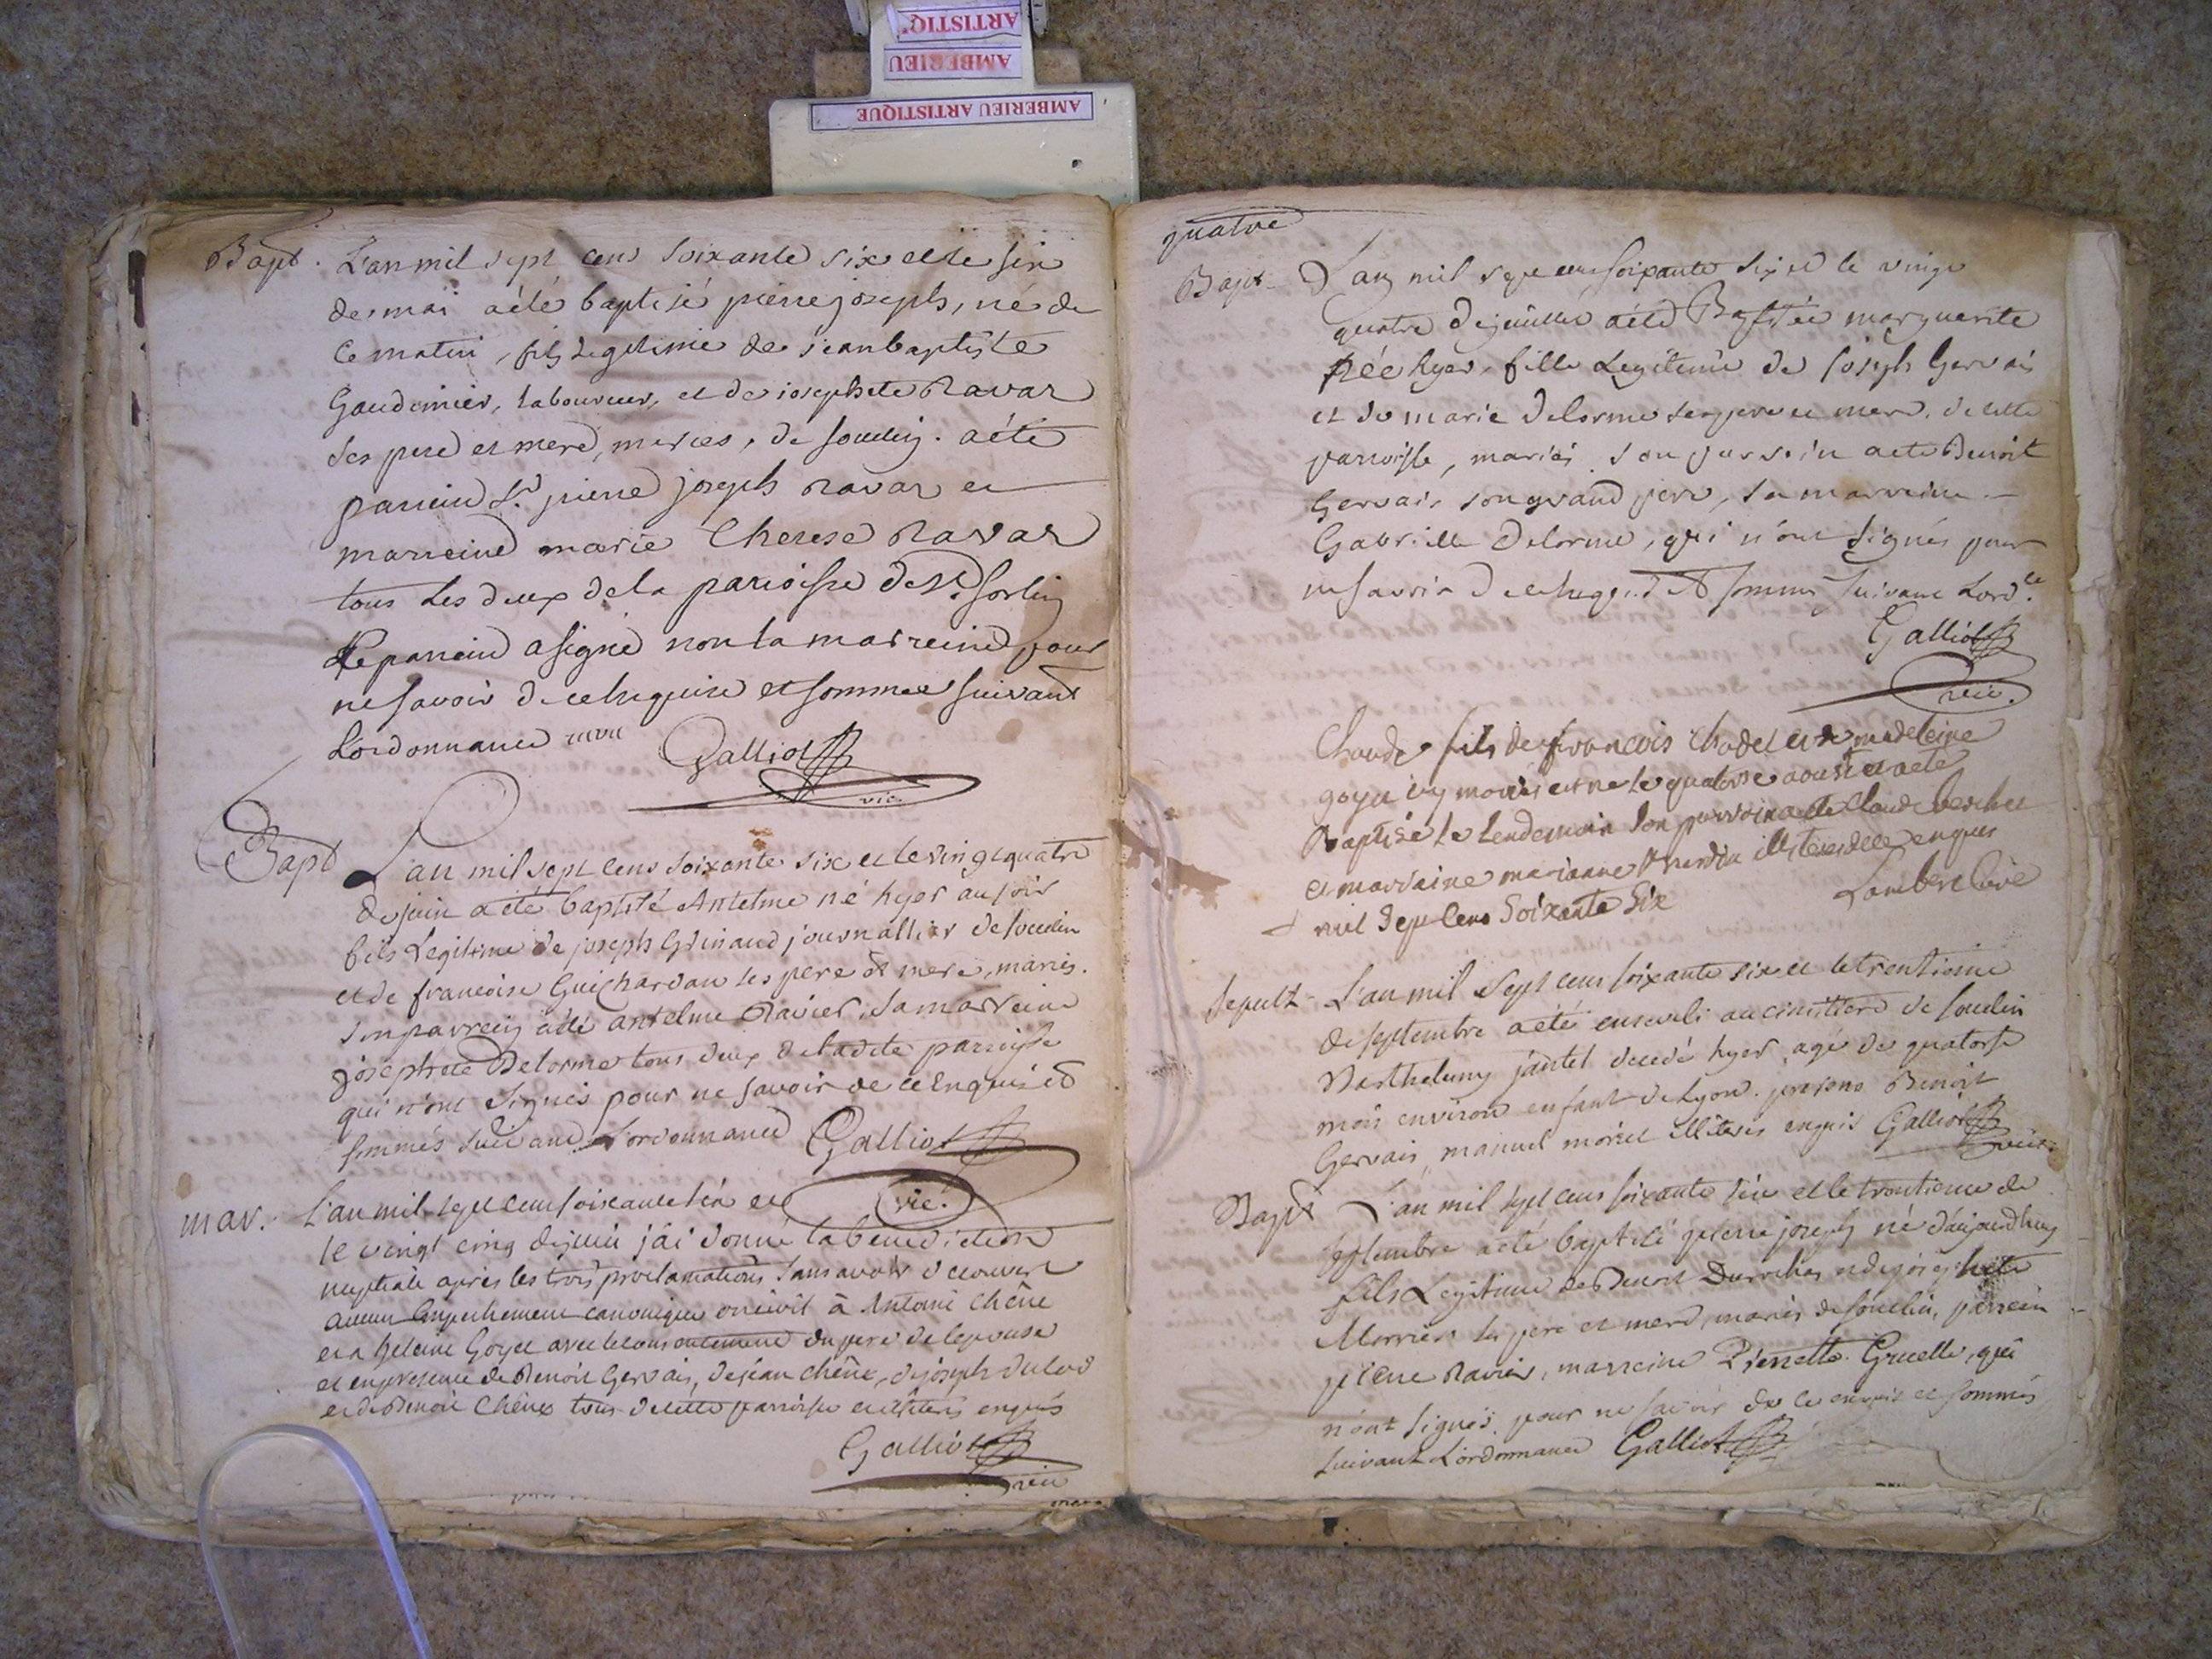 ARTISTIQ
AMBERIEU
AMBERIEU ARTISTIQUE
Bapt. L'an mil sept cens soixante six et le six
de mai a été baptisé pierre joseph, né de
ce matin, fils legitime de jean baptiste
Gaudinier, laboureur, et de iosephete Ravar
ses pere et mere, maries, de souclin. a été
parrein Sr. pierre joseph ravar et
marreine marie Therese Ravar
tous les deux de la parroisse de St. Sorlin
Le parrein a signé non la marreine pour
ne savoir de ce enquise et sommee suivant
L'ordonnance
Galliot
vic.
Bapt L'an mil sept cens soixante six et le vingt quatre
de juin a été baptisé Antelme né hyer au soir
fils Legitime de joseph Grinand journallier de souclin
et de francoise Guichardan ses pere et mere, mariés.
son parrein a été antelme Ravier, sa marreine
josephete Delorme tous deux de ladite parroisse
qui n'ont signés pour ne savoir de ce enquis et
sommés suivant L'ordonnance Galliot
vic.
mar. L'an mil sept cens soixante six et
le vingt cinq de juin j'ai donné la benediction
nuptiale après les trois proclamations sans avoir decouvert
aucun empechement canonique ou civil à Antoine Chêne
et a helaine Goyet avec le consentement du pere de lepouse
et en presence de Benoit Gervais, de jean chêne, de joseph
et de Benoit Chêne tous de cette parroisse et illiteres enquis
Galliot
vic
quatre
Bapt. L'an mil sept cens soixante six et le vingt
quatre de juillet a été Baptisée marguerite
née hyer, fille Legitime de joseph Gervais
et de marie Delorme ses pere et mere, de cette
parroisse, mariés son parrein a été Benoit
Gervais son grand pere, sa marreine
Gabrielle Delorme, qui n'ont signés pour
ne savoir de ce enquis et sommés suivant Lord.ce
Galliot
vic.
Claude fils de francois Chodel et de madeleine
goyet mariés est né le quatorse aoust et a eté
Baptisé le lendemain son parrain a eté Claude
et marraine marianne illiteres de ce enquis
mil sept cens soixante six Lambert Curé
Sepult. L'an mil sept cens soixante six et le trentieme
de septembre a été enseveli au cimittiere de souclin
Barthelemy jantet decedé hyer, agé de quatorse
mois environ enfant de Lyon. presens Benoit
Gervais, manuel illiteres enquis Galliot
vic.
Bapt L'an mil sept cens soixante six et le trentieme de
septembre a été baptisé pierre joseph né d'aujourdhuy
fils Legitime de Benoit et de josephete
ses pere et mere, mariés de souclin, parrein
pierre Ravier, marreine Pierrette Gruelle, qui
n'ont signés pour ne savoir de ce enquis et sommés
suivant L'ordonnance Galliot